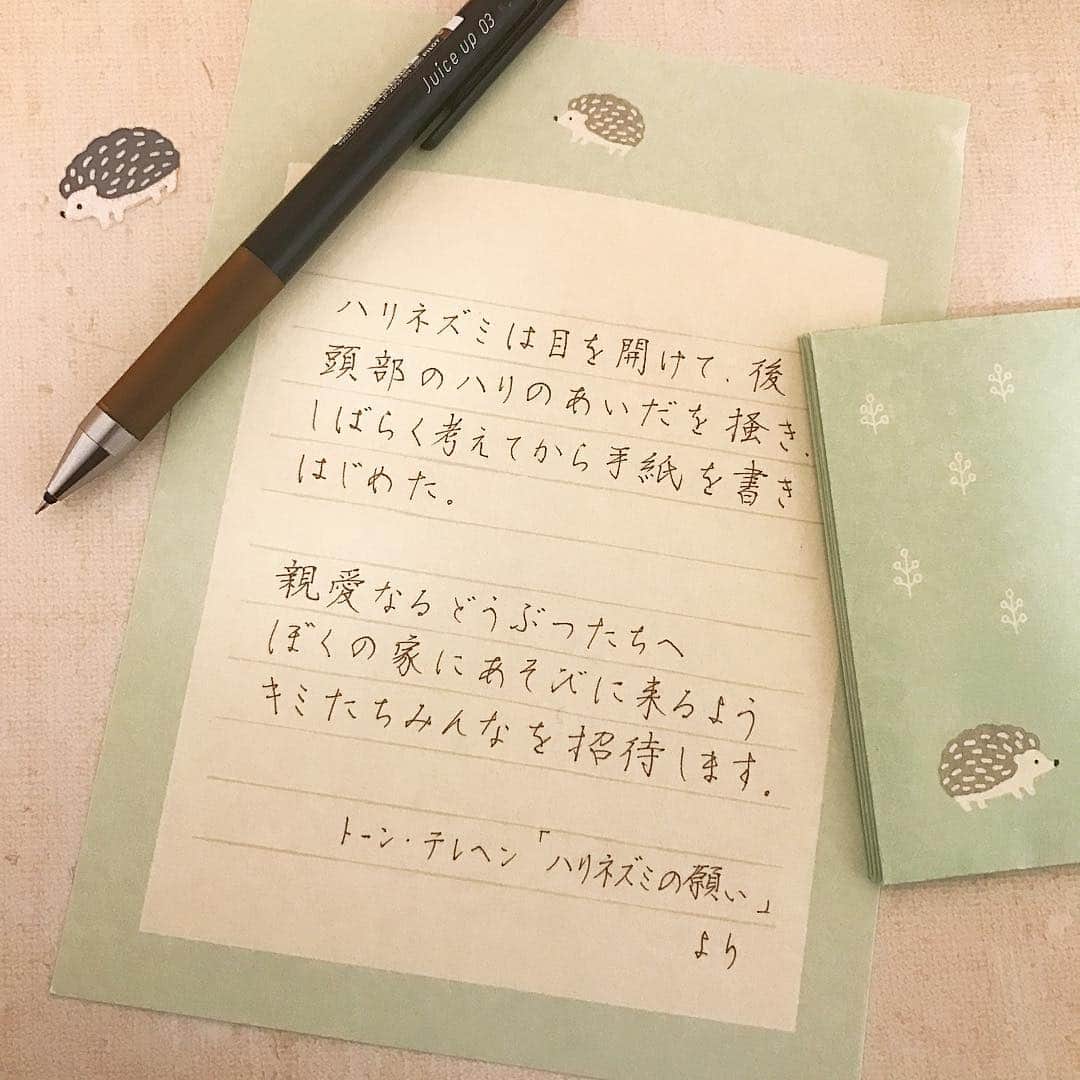 Juice up 03
PILOT
ハリネズミは目を開けて、後
頭部のハリのあいだを掻き、
しばらく考えてから手紙を書き
はじめた。
親愛なるどうぶつたちへ
ぼくの家にあそびに来るよう
キミたちみんなを招待します。
トーン・テレヘン「ハリネズミの願い」
より